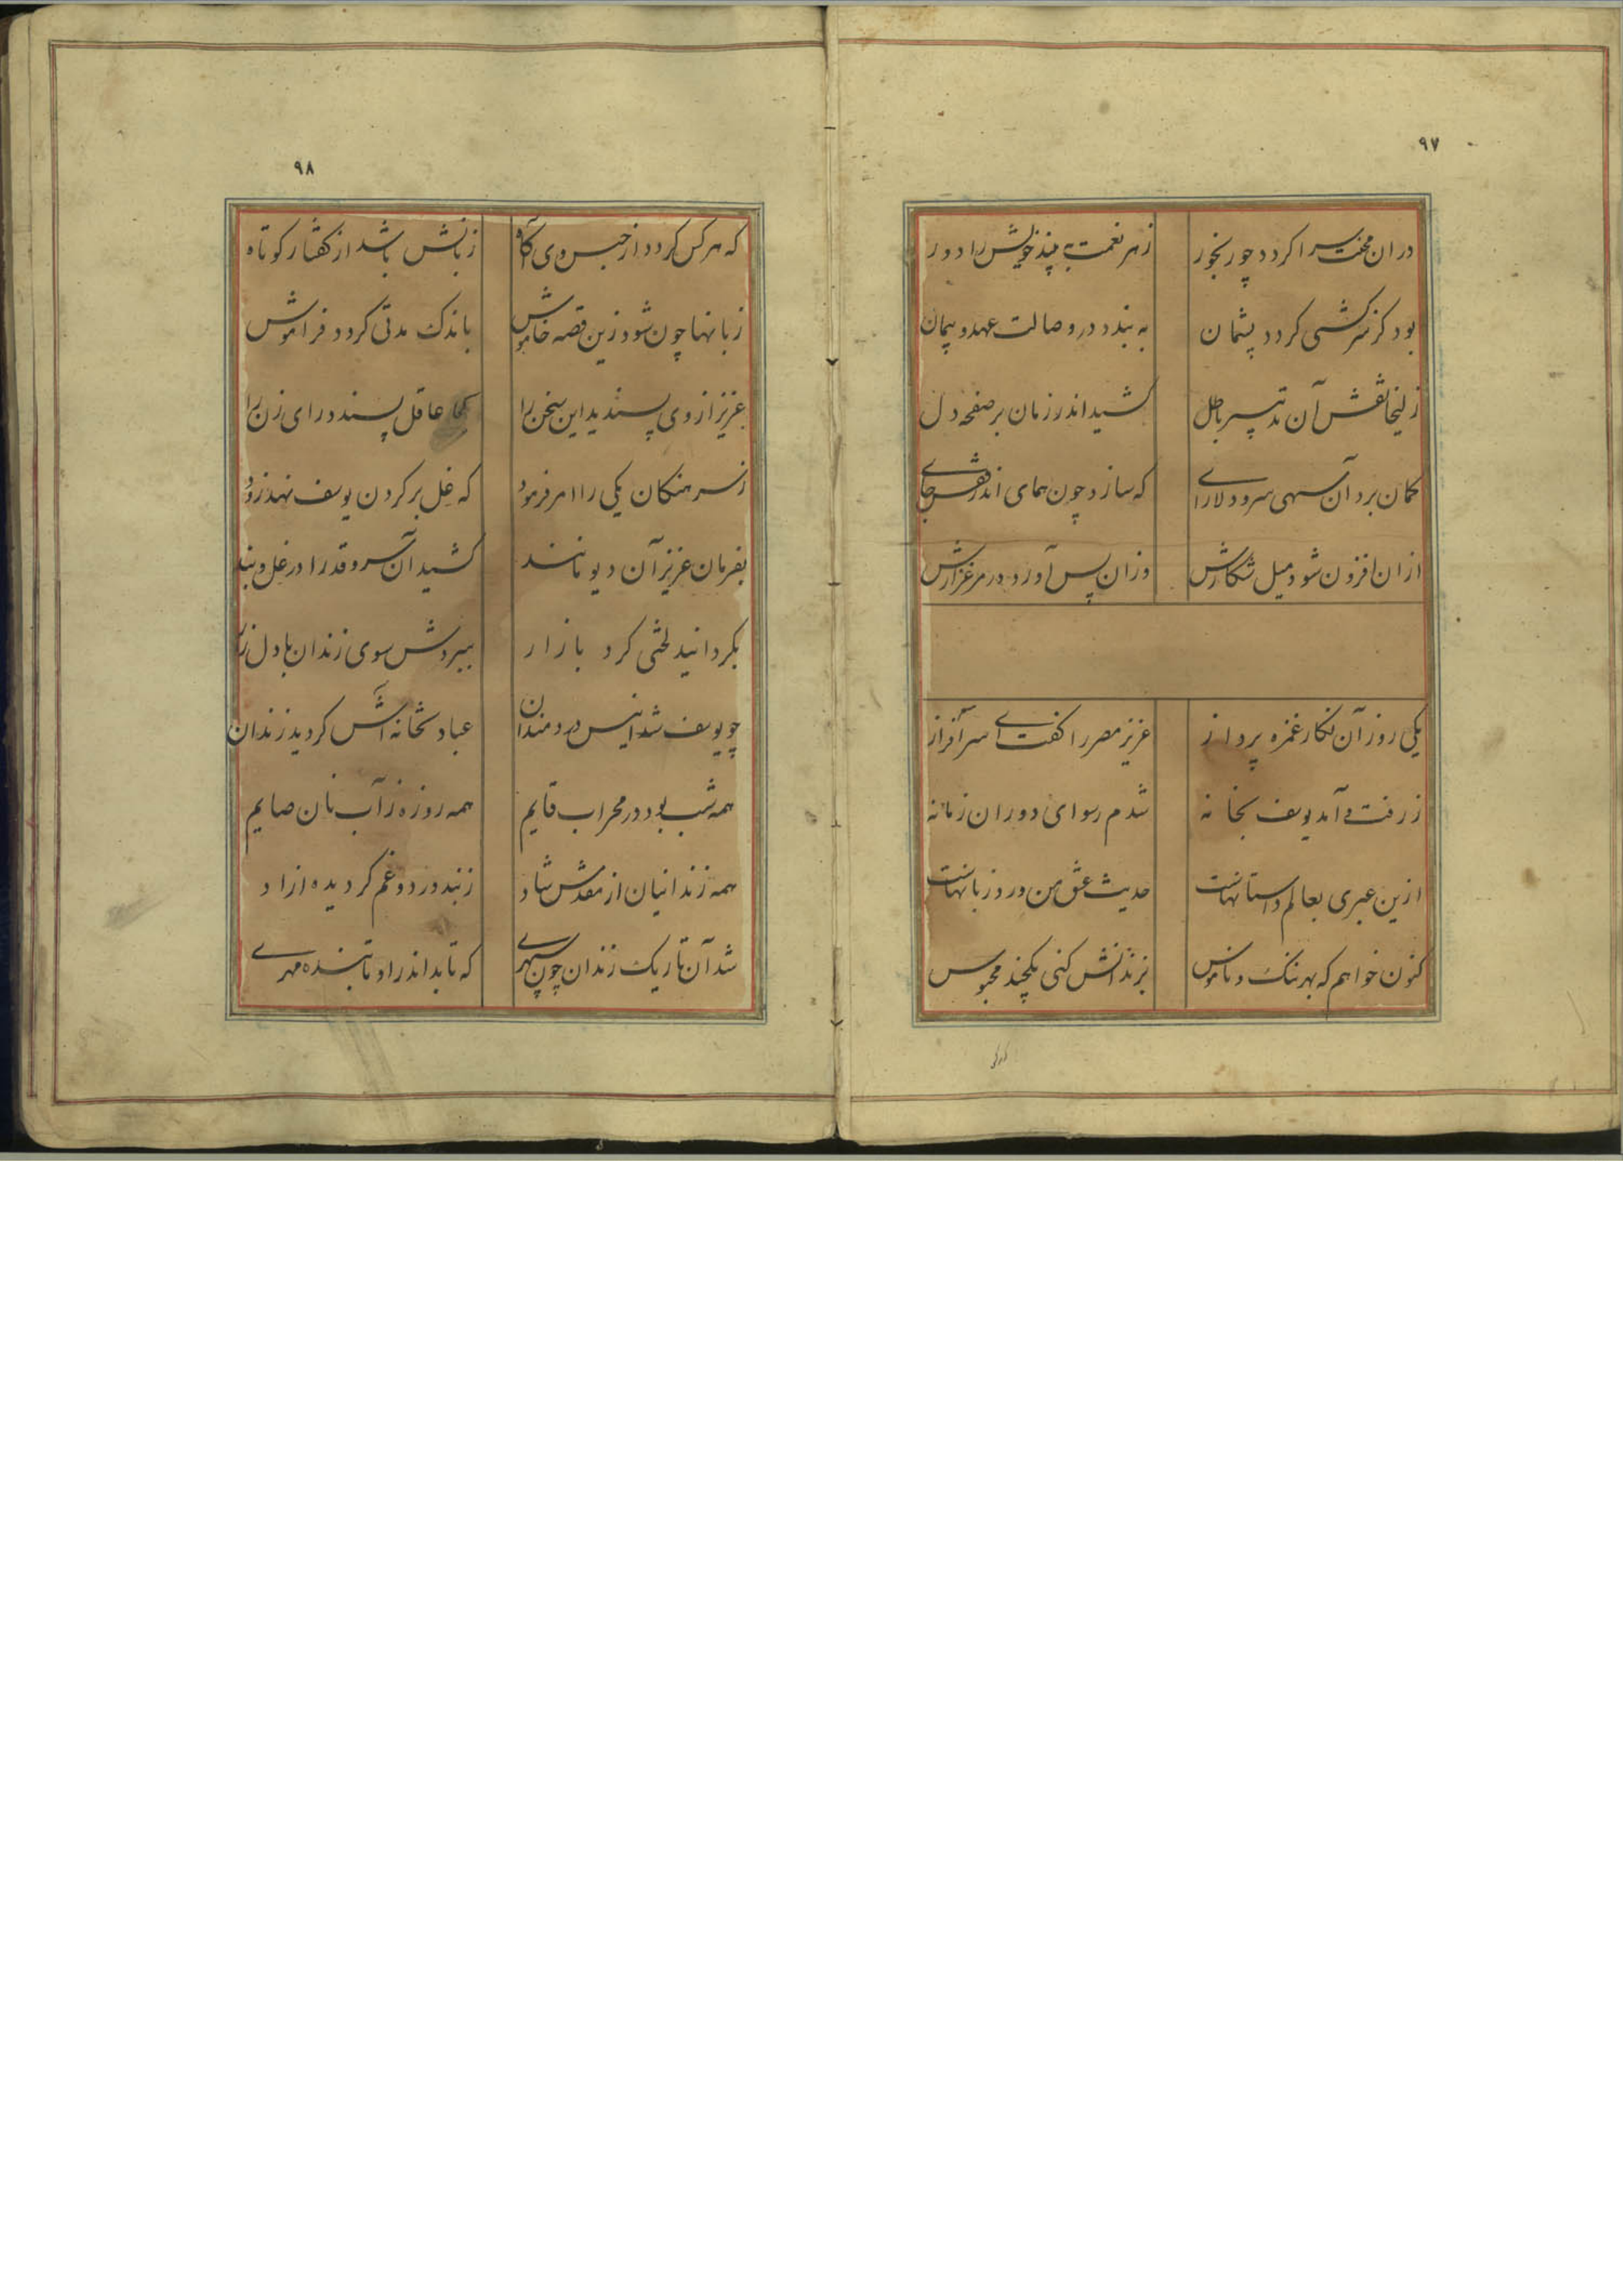 ۹۷
دران محنت سرا کردد چو رنجور زهر نعمت به بیند خویش را دور
بود کز سرکشی کردد پشمان به بندد در وصالت عهد و پیمان
زلیخا نقش آن تدبیر باطل کشید اندر زمان بر صفحه دل
کمان برد آن سهی سرو دلارای که سازد چون همای اندر قفس جای
ازان افزون شود میل شکارش وزان پس آورد در مرغزارش
یکی روز آن نکار غمزه پرداز عزیز مصر را کفت ای سرآفراز
ز رفت و آمد یوسف بخانه شدم رسوای دوران زمانه
ازین عبری بعالم داستانهاست حدیث عشق من ورد زبانهاست
کنون خواهم که بهر ننک و ناموس بزندانش کنی یکچند محبوس
۹۸
که هرکس کردد از حبس وی آکاه زبانش باشد از کفتار کوتاه
زبانها چون شود زین قصه خاموش باندک مدتی کردد فراموش
عزیز از وی پسندید این سخن را کجا عاقل پسندد رای زن را
ز سرهنکان یکی را امر فرمود که غل بر کردن یوسف نهد زود
بفرمان عزیز آن دیو مانند کشید آن سرو قد را در غل و بند
بکردانید لختی کرد بازار ببردش سوی زندان با دل زار
چو یوسف شد انیس دردمندان عبادتخانه اش کردید زندان
همه شب بود در محراب قایم همه روزه ز آب نان صایم
همه زندانیان از مقدمش شاد ز بند درد و غم کردیده ازاد
شد آن تاریک زندان چون سپهری که تابد اندر او تابنده مهری